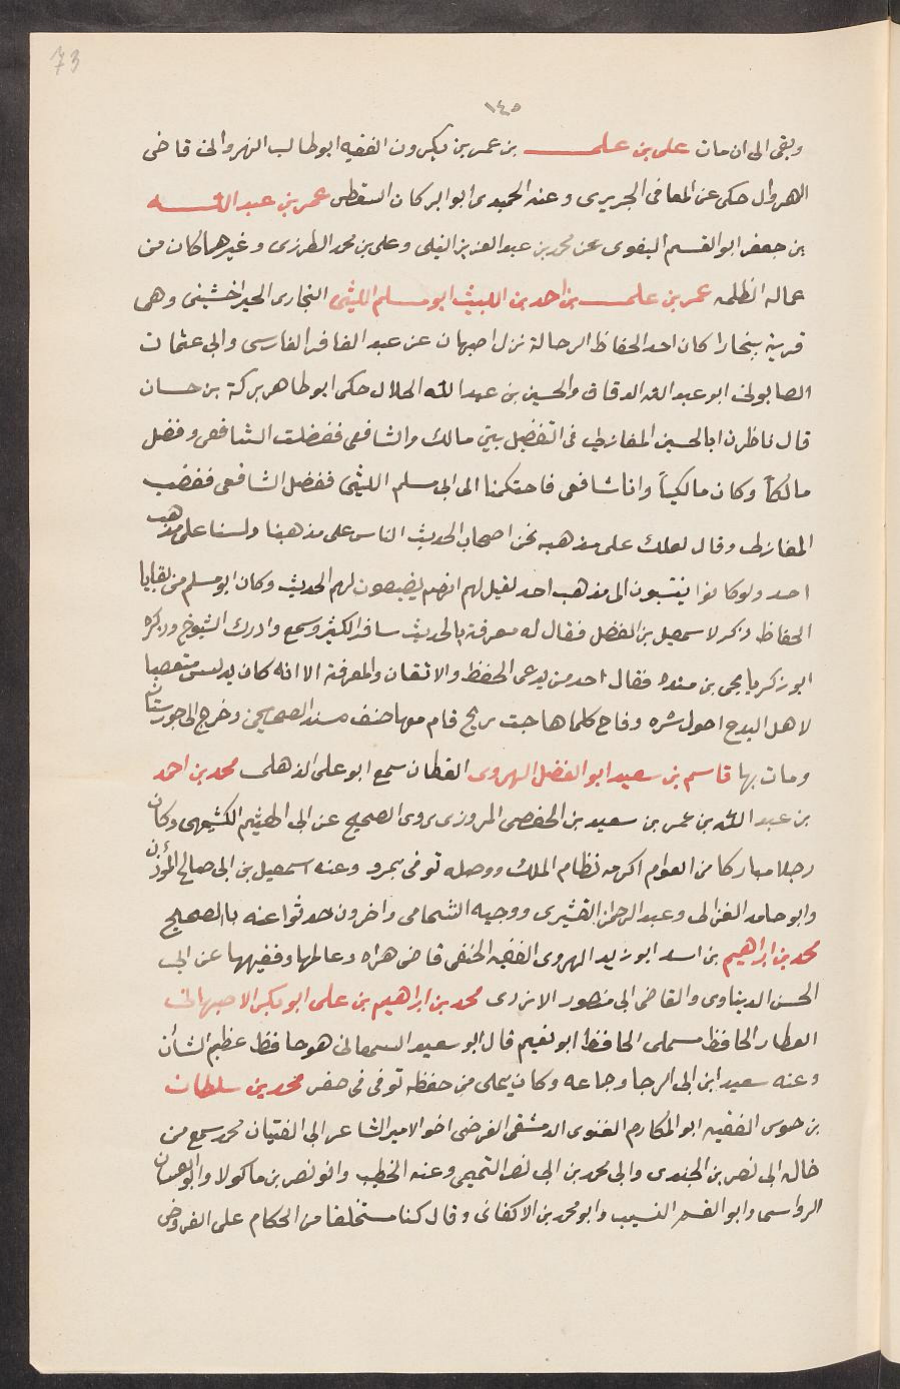 73
١٤٥
وبقى الى ان مات على بن على بن عمر بن بكرون الفقيه ابو طالب النهروانى قاضى
النهروان حكى عن المعافى الجريرى وعنه الحميدى ابو البركات السقطى عمر بن عبد الله
بن جعفر ابو القسم البغوى عن محمد بن عبد العزيز النيلى وعلى بن محمد الطرزى وغيرهما كان من
عماله الظلمه عمر بن على بن احمد بن الليث ابو مسلم الليثى البخارى الجيراخشنى وهى
قرية ببخارا كان احد الحفاظ الرحالة نزل اصبهان عن عبد الغافر الفارسى وابى عثمان
الصابونى ابو عبد الله الدقاق والحسين بن عبد الله الخلال حكى ابو طاهر بركة بن حسان
قال ناظرت ابا الحسين المغازلى فى التفضيل بين مالك والشافعى ففضلت الشافعى وفضل
مالكاً وكان مالكياً وانا شافعى فاحتكمنا الى ابى مسلم الليثى ففضل الشافعى فغضب
المغازلى وقال لعلك على مذهبه نحن اصحاب الحديث الناس على مذهبنا ولسنا على مذهب
احد ولو كانوا ينتسبون الى مذهب احد لقيل لهم انهم يضعون لهم الحديث وكان ابو مسلم من بقايا
الحفاظ ذكر لاسمعيل بن الفضل فقال له معرفة بالحديث سافر الكثير وسمع وادرك الشيوخ وذكره
ابو زكريا يحيى بن منده فقال احد من يدعى الحفظ والاتقان والمعرفة الا انه كان يدلس متعصبا
لاهل البدع احول شره وقاح كلما هاجت ريح قام معها صنف مسند الصحيحين وخرج الى خوزستان
ومات بها قاسم بن سعيد ابو الفضل الهروى القطان سمع ابو على الذهلى محمد بن احمد
بن عبد الله بن عمر بن سعيد بن الحفصى المروزى يروى الصحيح عن ابى الهيثم الكشيهى وكان
رجلا مباركا من العوام اكرمه نظام الملك ووصله توفى بمرو وعنه اسمعيل بن ابى صالح المؤذن
وابو حامد الغزالى وعبد الرحمن القشيرى ووجيه الشحامى واخرون حدثوا عنه بالصحيح
محمد بن ابراهيم بن اسد ابو زيد الهروى الفقيه الحنفى قاضى هراه وعالمها وفقيهها عن ابى
الحسن الديناوى والقاضى ابى منصور الازدى محمد بن ابراهيم بن على ابو بكر الاصبهانى
العطار الحافظ مستملى الحافظ ابو نعيم قال ابو سعيد السمعانى هو حافظ عظيم الشان
وعنه سعيد ابن ابى الرجا وجاعه وكان يملى من حفظه توفى فى صفر محمد بن سلطان
بن حيوس الفقيه ابو المكارم الغنوى الدمشقى الفرضى اخو الامير الشاعر ابى الفتيان محمد سمع من
خاله ابى نصر بن الجندى وابى محمد بن ابى نصر التميمى وعنه الخطيب وابو نصر بن ماكولا وابو الفتيان
الرواسى وابو القسم النسيب وابو محمد بن الاكفانى وقال كنا مستخلفا من الحكام على الفروض